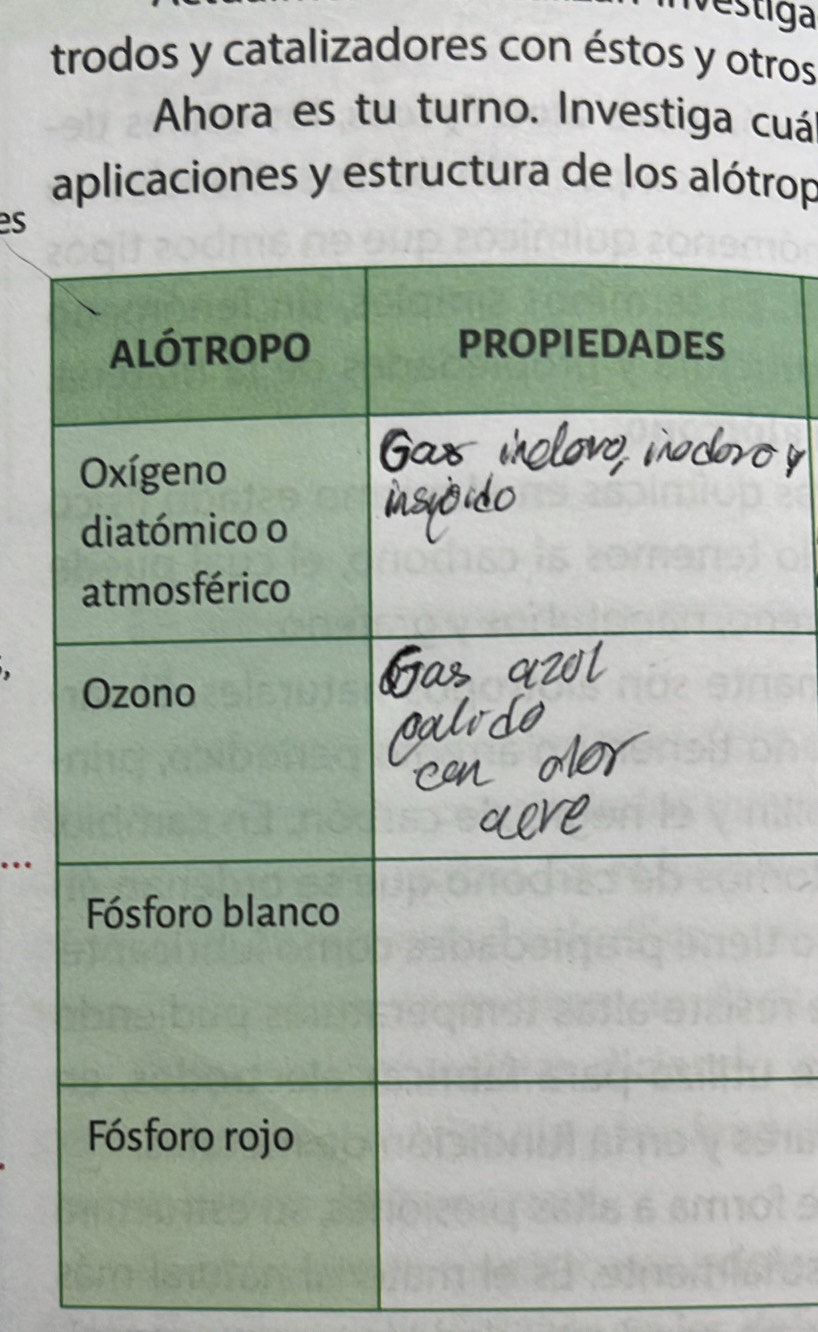 trodos y catalizadores con éstos y otros
Ahora es tu turno. Investiga cuál
aplicaciones y estructura de los alótrop
es
ALÓTROPO
PROPIEDADES
Oxígeno
diatómico o
atmosférico
Gas incloro, inodoro y
insípido
Ozono
Gas azol
palido
con olor
acre
Fósforo blanco
Fósforo rojo